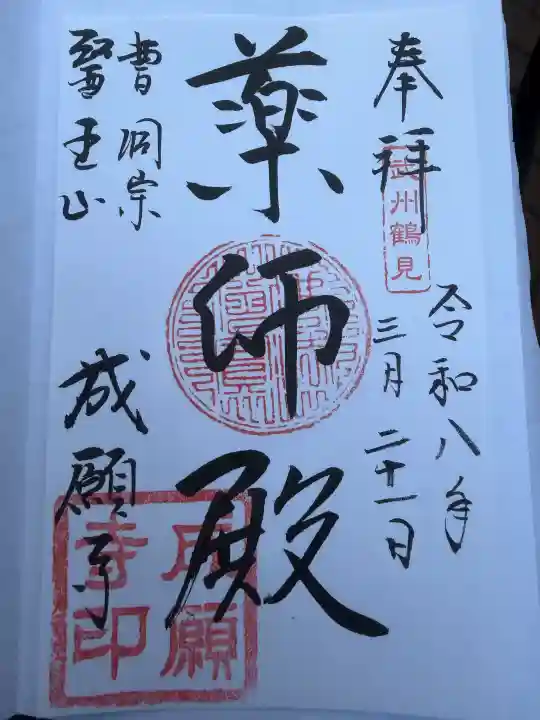 奉拝
武州鶴見
令和八年
三月二十一日
薬師殿
曹洞宗
醫王山
成願寺
成願寺印